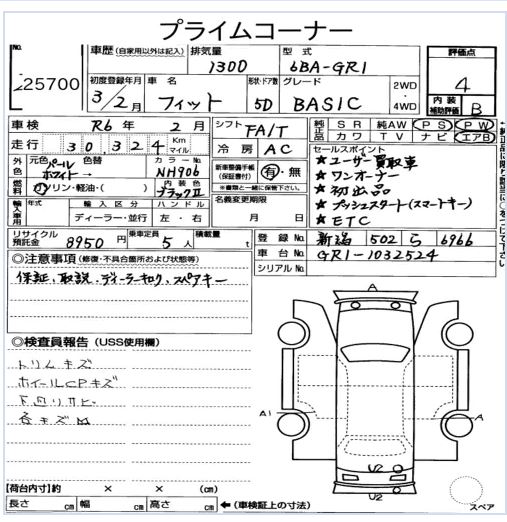 プライムコーナー
No. 25700
車歴 (自家用以外は記入)
排気量 1300
型式 6BA-GR1
評価点 4
内装補助評価 B
初度登録年月 3/2月
車名 フィット
形状・ドア数 5D
グレード BASIC
2WD・4WD
車検 R6年 2月
シフト FA/T
純正品 SR 純AW PS PW
カワ TV ナビ エアB
走行 30,324 Km マイル
冷房 AC
セールスポイント
★ユーザー買取車
★ワンオーナー
★初出品
★プッシュスタート(スマートキー)
★ETC
外色 元色 パールホワイト→ 色替
カラーNo. NH906
新車整備手帳(保証書付) 有・無
※注意事項欄に保証書と記載して下さい。
燃料 ガソリン・軽油・( )
内装色 ブラックII
名義変更期限 月 日
輸入車用 年式 輸入区分 ハンドル
ディーラー・並行 左・右
リサイクル預託金 8950円
乗車定員 5人
積載量 t
登録No. 新潟 502 ら 6966
車台No. GR1-1032524
シリアルNo.
◎注意事項 (修復・不具合箇所および状態等)
保証、取説、ディーラーキロク、スペアキー
◎検査員報告 (USS使用欄)
トリムキズ
ホイールCPキズ
下回りサビ
各キズ凹
A
A1
A
U2
U2
スペア
【荷台内寸】約 × × (cm)
長さ cm 幅 cm 高さ cm ←(車検証上の寸法)